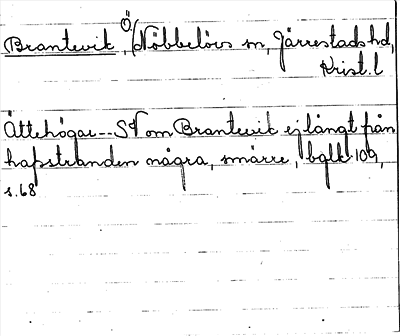 Brantevik, Ö. Nöbbelövs sn, Järrestads hd,
Krist. l
Ättehögar -- SV om Brantevik ej långt från
hafsstranden några, smärre, bglk 109,
s. 68